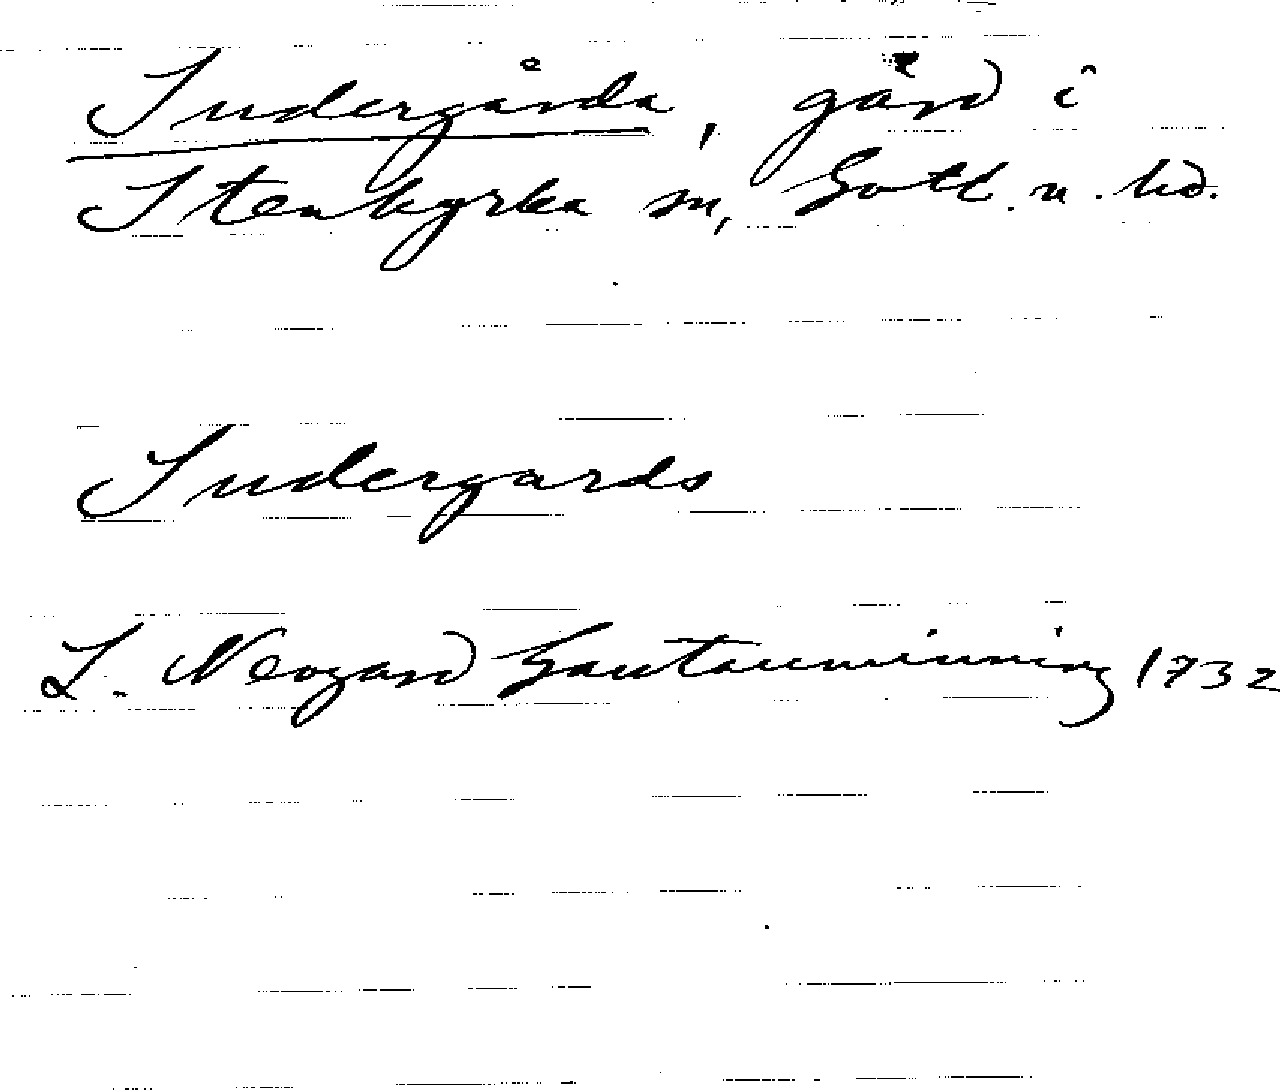 Sudergårda, gård i
Stenkyrka sn, Gotl. n. hd.
Sudergards
L. Neogard Gautauminning 1732